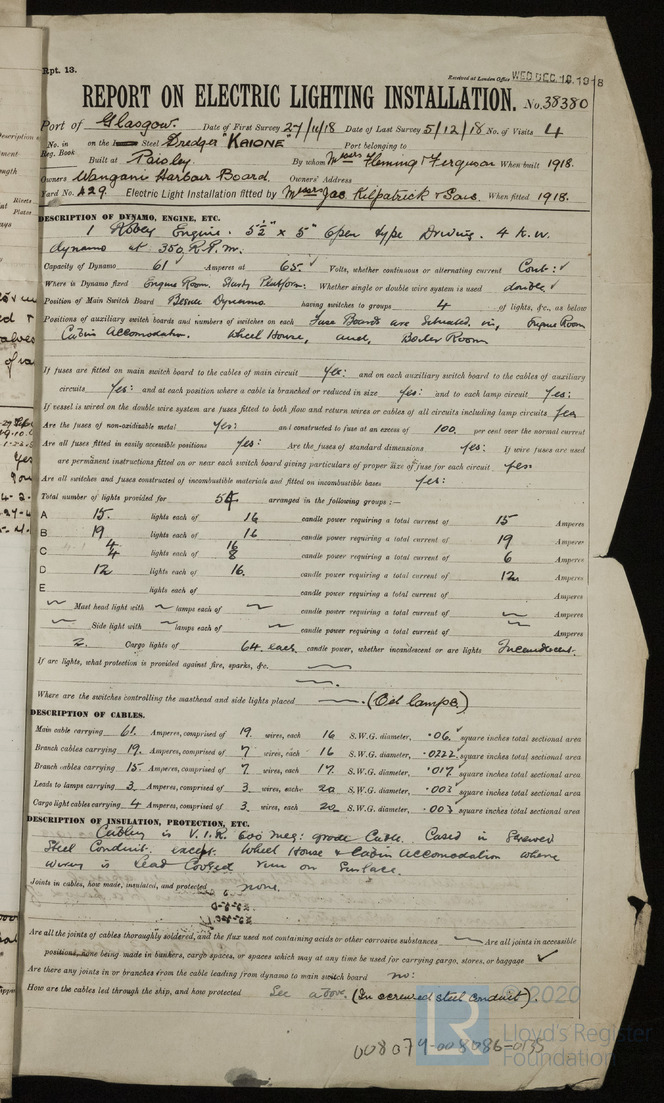 Rpt. 13.
Received at London Office WED. DEC. 18. 1918
REPORT ON ELECTRIC LIGHTING INSTALLATION. No. 38380
Port of Glasgow. Date of First Survey 27/11/18 Date of Last Survey 5/12/18 No. of Visits 4
No. in Reg. Book on the Iron Steel Dredger "KAIONE" Port belonging to
Built at Paisley. By whom Messrs Fleming & Ferguson When built 1918.
Owners Wangani Harbour Board. Owners' Address
Yard No. 429. Electric Light Installation fitted by Messrs Jas. Kilpatrick & Sons. When fitted 1918.
DESCRIPTION OF DYNAMO, ENGINE, ETC.
1 Robey Engine. 5½" x 5" Open type Driving. 4 K.W.
dynamo at 350 R.P.M.
Capacity of Dynamo 61 Amperes at 65. Volts, whether continuous or alternating current Cont:
Where is Dynamo fixed Engine Room. Starb'd Platform. Whether single or double wire system is used double
Position of Main Switch Board Beside Dynamo having switches to groups 4 of lights, &c., as below
Positions of auxiliary switch boards and numbers of switches on each Fuse Boards are Situated in, Engine Room
Cabin Accomodation. Wheel House, and, Boiler Room
If fuses are fitted on main switch board to the cables of main circuit Yes: and on each auxiliary switch board to the cables of auxiliary
circuits Yes: and at each position where a cable is branched or reduced in size Yes: and to each lamp circuit Yes:
If vessel is wired on the double wire system are fuses fitted to both flow and return wires or cables of all circuits including lamp circuits Yes
Are the fuses of non-oxidizable metal Yes: and constructed to fuse at an excess of 100 per cent over the normal current
Are all fuses fitted in easily accessible positions Yes: Are the fuses of standard dimensions Yes: If wire fuses are used
are permanent instructions fitted on or near each switch board giving particulars of proper size of fuse for each circuit Yes.
Are all switches and fuses constructed of incombustible materials and fitted on incombustible bases Yes:
Total number of lights provided for 54 arranged in the following groups :—
A 15. lights each of 16 candle power requiring a total current of 15 Amperes
B 19 lights each of 16 candle power requiring a total current of 19 Amperes
C 4 4 lights each of 16 8 candle power requiring a total current of 6 Amperes
D 12 lights each of 16. candle power requiring a total current of 12 Amperes
E lights each of candle power requiring a total current of Amperes
Mast head light with lamps each of candle power requiring a total current of Amperes
Side light with lamps each of candle power requiring a total current of Amperes
2. Cargo lights of 64 each candle power, whether incandescent or arc lights Incandescent.
If arc lights, what protection is provided against fire, sparks, &c.
Where are the switches controlling the masthead and side lights placed (Oil lamps)
DESCRIPTION OF CABLES.
Main cable carrying 61. Amperes, comprised of 19. wires, each 16 S.W.G. diameter, .06. square inches total sectional area
Branch cables carrying 19. Amperes, comprised of 7 wires, each 16 S.W.G. diameter, .0222 square inches total sectional area
Branch cables carrying 15. Amperes, comprised of 7. wires, each 17. S.W.G. diameter, .017 square inches total sectional area
Leads to lamps carrying 3. Amperes, comprised of 3. wires, each 20 S.W.G. diameter, .003 square inches total sectional area
Cargo light cables carrying 4 Amperes, comprised of 3. wires, each 20 S.W.G. diameter, .003 square inches total sectional area
DESCRIPTION OF INSULATION, PROTECTION, ETC.
Cabling is V.I.R. 600 meg: grade Cable. Cased in Screwed
Steel Conduit, except. Wheel House & Cabin Accomodation where
wiring is Lead Covered run on Surface.
Joints in cables, how made, insulated, and protected none.
Are all the joints of cables thoroughly soldered, and the flux used not containing acids or other corrosive substances Are all joints in accessible
positions, none being made in bunkers, cargo spaces, or spaces which may at any time be used for carrying cargo, stores, or baggage
Are there any joints in or branches from the cable leading from dynamo to main switch board no:
How are the cables led through the ship, and how protected See above. (In screwed steel conduit).
© 2020
Lloyd's Register
Foundation
008079-008086-0135